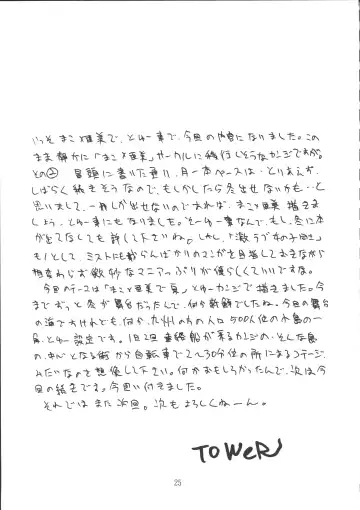 いっそ まこと×亜美で、とゆー事で、今回の内容になりました。この
まま静かに「まこと×亜美」サークルに移行しそうなカンジですが。
その② 冒頭に書いた通り、月一本ペースは、とりあえず
しばらく続きそうなので、もしかしたら冬出せないかも…と
思いまして、一冊しか出せないのであれば、まこと×亜美 描きま
しょう、とゆー事にもなりました。そーゆー事なんで、もし、冬に本
が出てなくても許して下さいね。しかし、「激ラブ女の子同士」
もいいとして、ミストにも載らんばかりのマンガを目指しておきながら
相変わらず微妙なマニアっぷりが僕らしくていいですな。
今回のテーマは「まこと×亜美で夏」とゆーカンジで描きました。今
までずっと冬が舞台だったんで、何か新鮮でしたね。今回の舞台
の海ですけれども、何か、九州の方の人口500人位の小島の一
島、とゆー設定です。1日2回 連絡船が来るカンジの。そんな島
の、中心となる街から自転車で20〜30分位の所にあるコテージ、
みたいなのを想像して下さい。何かおもしろかったんで、次は今
回の続きです。今思い付きました。
それではまた次回。次もよろしくねーん。
TOWER
25